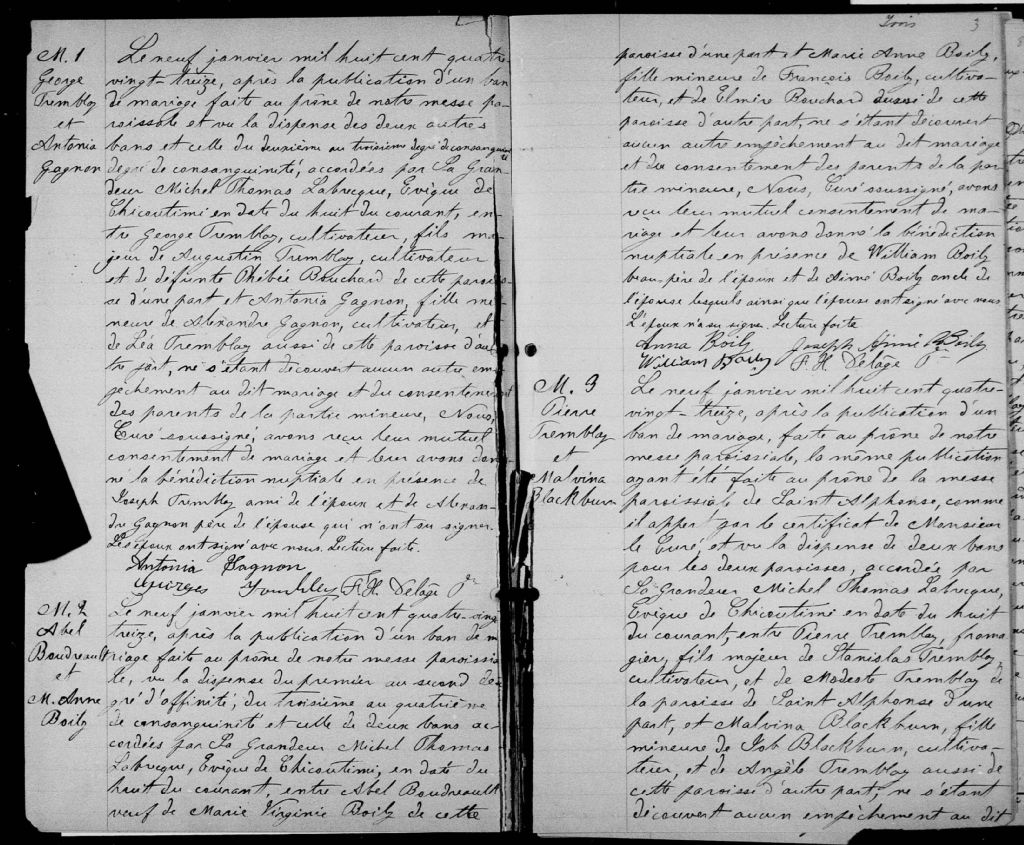 M. 1
George
Tremblay
et
Antonia
Gagnon
Le neuf janvier mil huit cent quatre-
vingt-treize, après la publication d'un ban
de mariage faite au prône de notre messe pa-
roissiale et vu la dispense des deux autres
bans et celle du deuxième au troisième degré de consanguinité
degré de consanguinité, accordées par Sa Gran-
deur Michel Thomas Labrecque, Evêque de
Chicoutimi en date du huit du courant, en-
tre George Tremblay, cultivateur, fils ma-
jeur de Augustin Tremblay, cultivateur
et de défunte Phébée Bouchard de cette parois-
se d'une part et Antonia Gagnon, fille mi-
neure de Alexandre Gagnon, cultivateur, et
de Léa Tremblay aussi de cette paroisse d'au-
tre part, ne s'étant découvert aucun autre em-
pêchement au dit mariage et du consentement
des parents de la partie mineure, Nous,
Curé soussigné, avons reçu leur mutuel
consentement de mariage et leur avons don-
né la bénédiction nuptiale en présence de
Joseph Tremblay ami de l'époux et de Alexan-
dre Gagnon père de l'épouse qui n'ont su signer.
Les époux ont signé avec nous. Lecture faite.
Antonia Gagnon
F. H. Delâge Ptr
M. 2
Abel
Boudreault
et
M. Anne
Boily
Le neuf janvier mil huit cent quatre-vingt
treize, après la publication d'un ban de ma
riage faite au prône de notre messe paroissia
le, vu la dispense du premier au second de-
gré d'affinité, du troisième au quatrième
de consanguinité et celle de deux bans ac-
cordées par Sa Grandeur Michel Thomas
Labrecque, Evêque de Chicoutimi, en date du
huit du courant, entre Abel Boudreault
veuf de Marie Virginie Boily de cette
Trois 3
paroisse d'une part et Marie Anne Boily,
fille mineure de François Boily, cultiva-
teur, et de Elmire Bouchard aussi de cette
paroisse d'autre part, ne s'étant découvert
aucun autre empêchement au dit mariage
et du consentement des parents de la par
tie mineure, Nous, Curé soussigné, avons
reçu leur mutuel consentement de ma-
riage et leur avons donné la bénédiction
nuptiale en présence de William Boily
beau-père de l'époux et de Aimé Boily oncle de
l'épouse lesquels ainsi que l'épouse ont signé avec nous
L'époux n'a su signer. Lecture faite
Anna Boily Joseph Aimé Boily
William Boily F. H. Delâge Ptr
M. 3
Pierre
Tremblay
et
Malvina
Blackburn
Le neuf janvier mil huit cent quatre-
vingt-treize, après la publication d'un
ban de mariage, faite au prône de notre
messe paroissiale, la même publication
ayant été faite au prône de la messe
paroissiale de Saint Alphonse, comme
il appert par le certificat de Monsieur
le Curé, et vu la dispense de deux bans
pour les deux paroisses, accordée par
Sa Grandeur Michel Thomas Labrecque,
Evêque de Chicoutimi en date du huit
du courant, entre Pierre Tremblay, froma
gier, fils majeur de Stanislas Tremblay,
cultivateur, et de Modeste Tremblay de
la paroisse de Saint Alphonse d'une
part, et Malvina Blackburn, fille
mineure de Job Blackburn, cultiva-
teur, et de Angèle Tremblay aussi de
cette paroisse d'autre part, ne s'étant
découvert aucun empêchement au dit